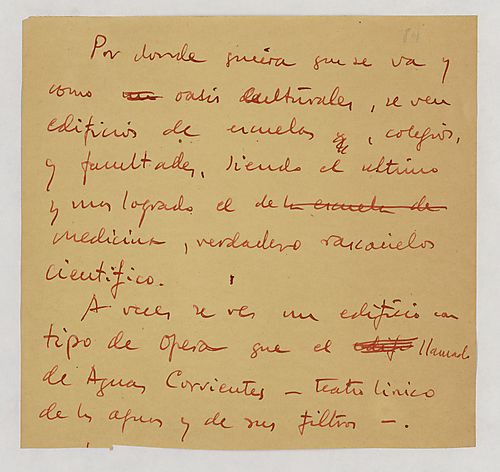 Por donde quiera que se va y
como oasis culturales, se ven
edificios de escuelas, colegios,
y facultades, siendo el ultimo
y mas logrado el de la escuela de
medicina, verdadero rascacielos
cientifico.
A veces se ves un edificio con
tipo de opera que el llamado
de Aguas Corrientes — teatro lirico
de las aguas y de sus filtros —.